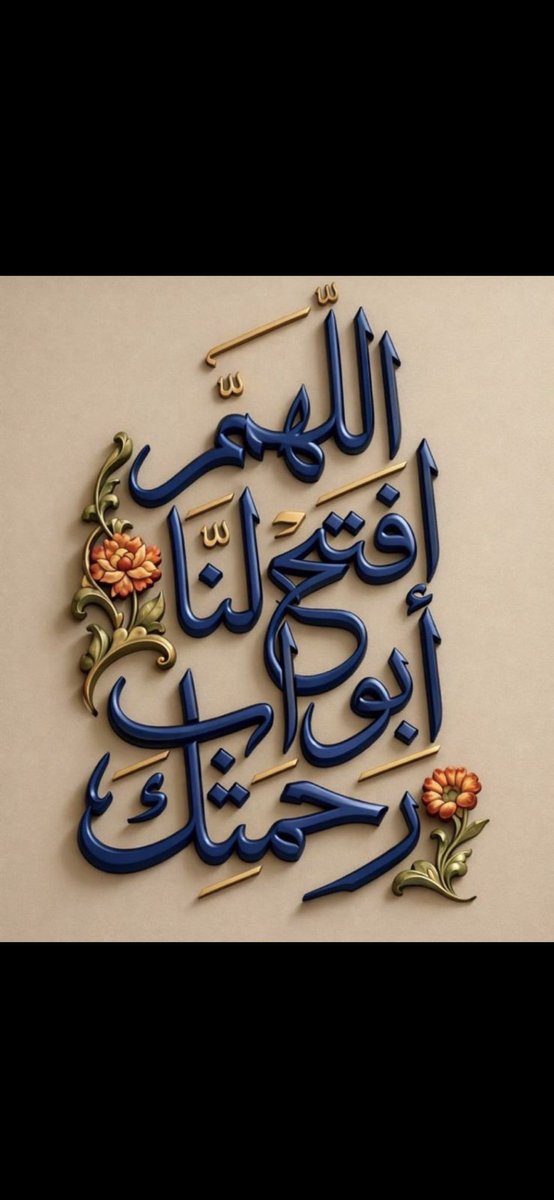 اللّهمّ
افتح لنّا
أبواب
رحمتك